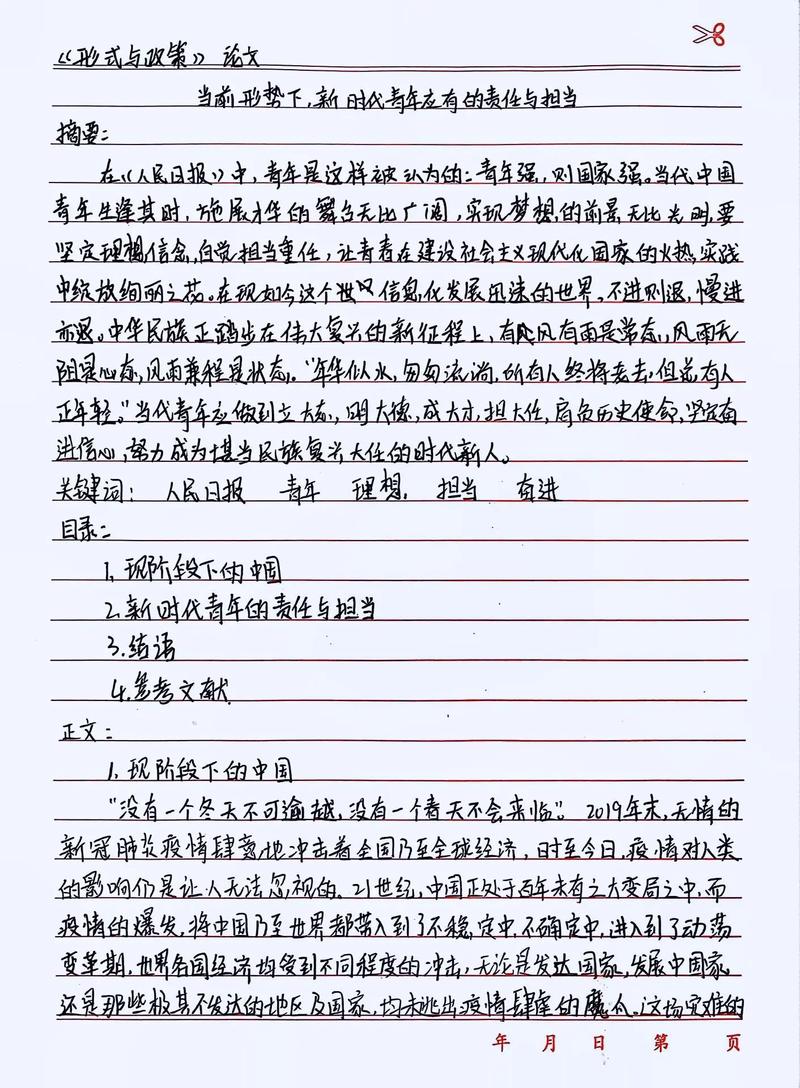 《形式与政策》论文
当前形势下,新时代青年应有的责任与担当
摘要:
在《人民日报》中,青年是这样被认为的:青年强,则国家强。当代中国
青年生逢其时,施展才华的舞台无比广阔,实现梦想的前景无比光明,要
坚定理想信念,自觉担当重任,让青春在建设社会主义现代化国家的火热实践
中绽放绚丽之花。在现如今这个世 信息化发展迅速的世界,不进则退,慢进
亦退。中华民族正踏步在伟大复兴的新征程上,有风有雨是常态,风雨无
阻是心态,风雨兼程是状态。"年华似水,匆匆流淌,所有人终将老去,但总有人
正年轻。"当代青年应做到立大志,明大德,成大才,担大任,肩负历史使命,坚定奋
进信心,努力成为堪当民族复兴大任的时代新人。
关键词: 人民日报 青年 理想 担当 奋进
目录:
1.现阶段下的中国
2.新时代青年的责任与担当
3.结语
4.参考文献
正文:
1.现阶段下的中国
"没有一个冬天不可逾越,没有一个春天不会来临"。2019年末,无情的
新冠肺炎疫情肆意地冲击着全国乃至全球经济,时至今日,疫情对人类
的影响仍是让人无法忽视的。21世纪,中国正处于百年未有之大变局之中,而
疫情的爆发,将中国乃至世界都带入到了不稳定中,不确定中,进入到了动荡
变革期,世界各国经济均受到不同程度的冲击,无论是发达国家,发展中国家
还是那些极其不发达的地区及国家,均未逃出疫情肆虐的魔爪。这场灾难的
年 月 日 第 页